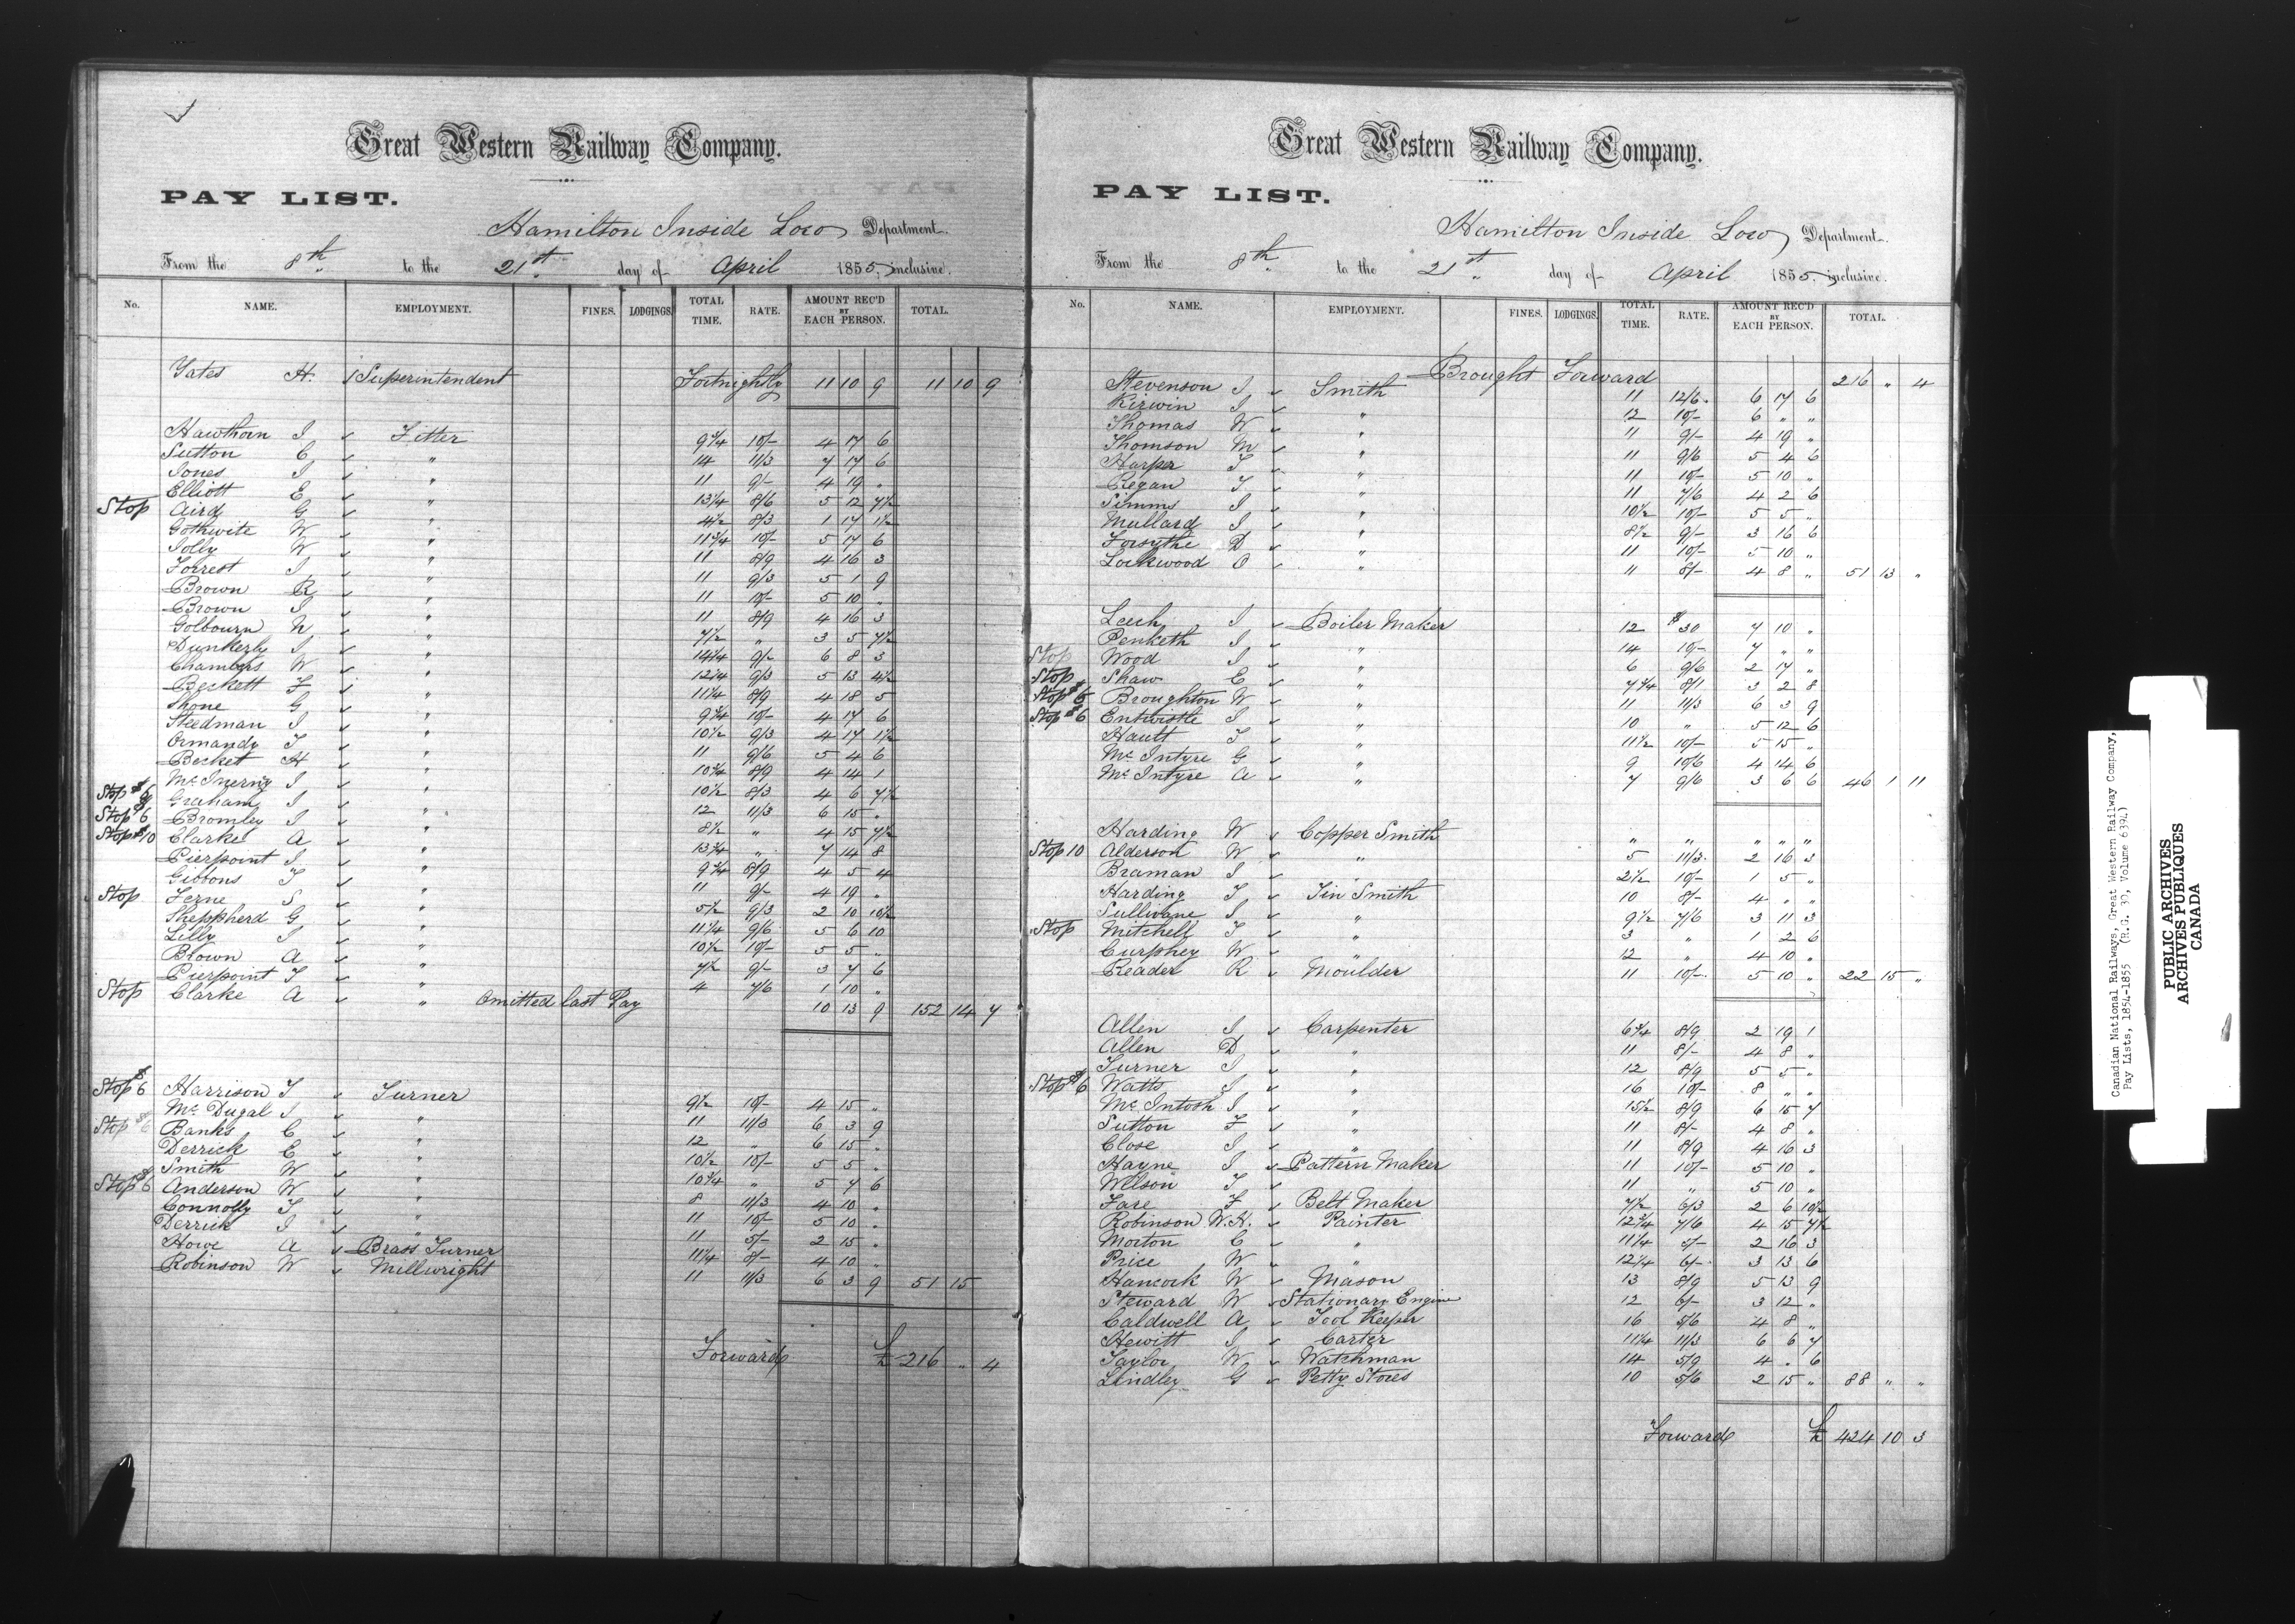 Great Western Railway Company.
PAY LIST.
Hamilton Inside Loco Department.
From the 8th to the 21st day of April 1855 inclusive.
No. NAME. EMPLOYMENT. FINES. LODGINGS. TOTAL TIME. RATE. AMOUNT REC'D BY EACH PERSON. TOTAL.
Yates H. Superintendent Fortnightly 11 10 9 11 10 9
Hawthorn J Fitter 9 3/4 10/- 4 17 6
Sutton C " 14 11/3 7 17 6
Jones J " 11 9/- 4 19 "
Elliott E " 13 1/4 8/6 5 12 7 1/2
Stop Aird G " 4 1/2 8/3 1 17 1 1/2
Gothwite W " 11 3/4 10/- 5 17 6
Jolly W " 11 8/9 4 16 3
Forrest J " 11 9/3 5 1 9
Brown R " 11 10/- 5 10 "
Brown J " 11 8/9 4 16 3
Golbourn N " 7 1/2 " 3 5 7 1/2
Dunkerly J " 14 1/4 9/- 6 8 3
Chambers W " 12 1/4 9/3 5 13 4 1/2
Beckett F " 11 1/4 8/9 4 18 5
Shone G " 9 3/4 10/- 4 17 6
Steedman J " 10 1/2 9/3 4 17 1 1/2
Ormandy T " 11 9/6 5 4 6
Becket H " 10 3/4 8/9 4 14 1
Mc Inerny J " 10 1/2 8/3 4 6 7 1/2
Stop $6 Graham J " 12 11/3 6 15 "
Stop $6 Bromley J " 8 1/2 " 4 15 7 1/2
Stop $10 Clarke A " 13 3/4 " 7 14 8
Pierpoint J " 9 3/4 8/9 4 5 4
Gibbons T " 11 9/- 4 19 "
Stop Ferne S " 5 1/2 9/3 2 10 10 1/2
Sheppherd G " 11 1/4 9/6 5 6 10
Lilly J " 10 1/2 10/- 5 5 "
Brown A " 7 1/2 9/- 3 7 6
Pierpoint T " 4 7/6 1 10 "
Stop Clarke A " Omitted last Pay 10 13 9 152 14 7
Stop $6 Harrison T Turner 9 1/2 10/- 4 15 "
Mc Dugal J " 11 11/3 6 3 9
Stop $6 Banks C " 12 " 6 15 "
Derrick E " 10 1/2 10/- 5 5 "
Smith W " 10 3/4 " 5 7 6
Stop $6 Anderson W " 8 11/3 4 10 "
Connolly T " 11 10/- 5 10 "
Derrick J " 11 5/- 2 15 "
Howe A Brass Turner 11 1/4 8/- 4 10 "
Robinson W Millwright 11 11/3 6 3 9 51 15 "
Forward £ 216 " 4
Great Western Railway Company.
PAY LIST.
Hamilton Inside Loco Department.
From the 8th to the 21st day of April 1855 inclusive.
No. NAME. EMPLOYMENT. FINES. LODGINGS. TOTAL TIME. RATE. AMOUNT REC'D BY EACH PERSON. TOTAL.
Brought Forward 216 " 4
Stevenson J Smith 11 12/6 6 17 6
Kirwin J " 12 10/- 6 " "
Thomas W " 11 9/- 4 19 "
Thomson M " 11 9/6 5 4 6
Harper T " 11 10/- 5 10 "
Regan T " 11 7/6 4 2 6
Simms J " 10 1/2 10/- 5 5 "
Mullard J " 8 1/2 9/- 3 16 6
Forsythe D " 11 10/- 5 10 "
Lockwood O " 11 8/- 4 8 " 51 13 "
Leech J Boiler Maker 12 $30 7 10 "
Penketh J " 14 10/- 7 " "
Stop Wood J " 6 9/6 2 17 "
Stop Shaw E " 7 3/4 8/1 3 2 8
Stop $6 Broughton W " 11 11/3 6 3 9
Stop $6 Entwistle J " 10 " 5 12 6
Hault T " 11 1/2 10/- 5 15 "
Mc Intyre G " 9 10/6 4 14 6
Mc Intyre A " 7 9/6 3 6 6 46 1 11
Harding W Copper Smith " " " " "
Stop 10 Alderson W " 5 11/3 2 16 3
Braman J " 2 1/2 10/- 1 5 "
Harding T Tin Smith 10 8/- 4 " "
Sullivane J " 9 1/2 7/6 3 11 3
Stop Mitchell T " 3 " 1 2 6
Curphey W " 12 " 4 10 "
Reader R Moulder 11 10/- 5 10 " 22 15 "
Allen J Carpenter 6 3/4 8/9 2 19 1
Allen D " 11 8/- 4 8 "
Turner J " 12 8/9 5 5 "
Stop $6 Watts J " 16 10/- 8 " "
Mc Intosh J " 15 1/2 8/9 6 15 7
Sutton F " 11 8/- 4 8 "
Close J " 11 8/9 4 16 3
Hayne J Pattern Maker 11 10/- 5 10 "
Wilson T " 11 " 5 10 "
Fare F Belt Maker 7 1/2 6/3 2 6 10 1/2
Robinson W.H. Painter 12 3/4 7/6 4 15 7 1/2
Morton C " 11 1/4 5/- 2 16 3
Price W " 12 1/4 6/- 3 13 6
Hancock W Mason 13 8/9 5 13 9
Steward W Stationary Engine 12 6/- 3 12 "
Caldwell A Tool Keeper 16 5/6 4 8 "
Hewitt J Carter 11 1/4 11/3 6 6 7
Taylor W Watchman 14 5/9 4 " 6
Lindley G Petty Stores 10 5/6 2 15 " 88 " "
Forward £ 424 10 3
Canadian National Railways, Great Western Railway Company,
Pay Lists, 1854-1855 (R.G. 30, Volume 6394)
PUBLIC ARCHIVES
ARCHIVES PUBLIQUES
CANADA